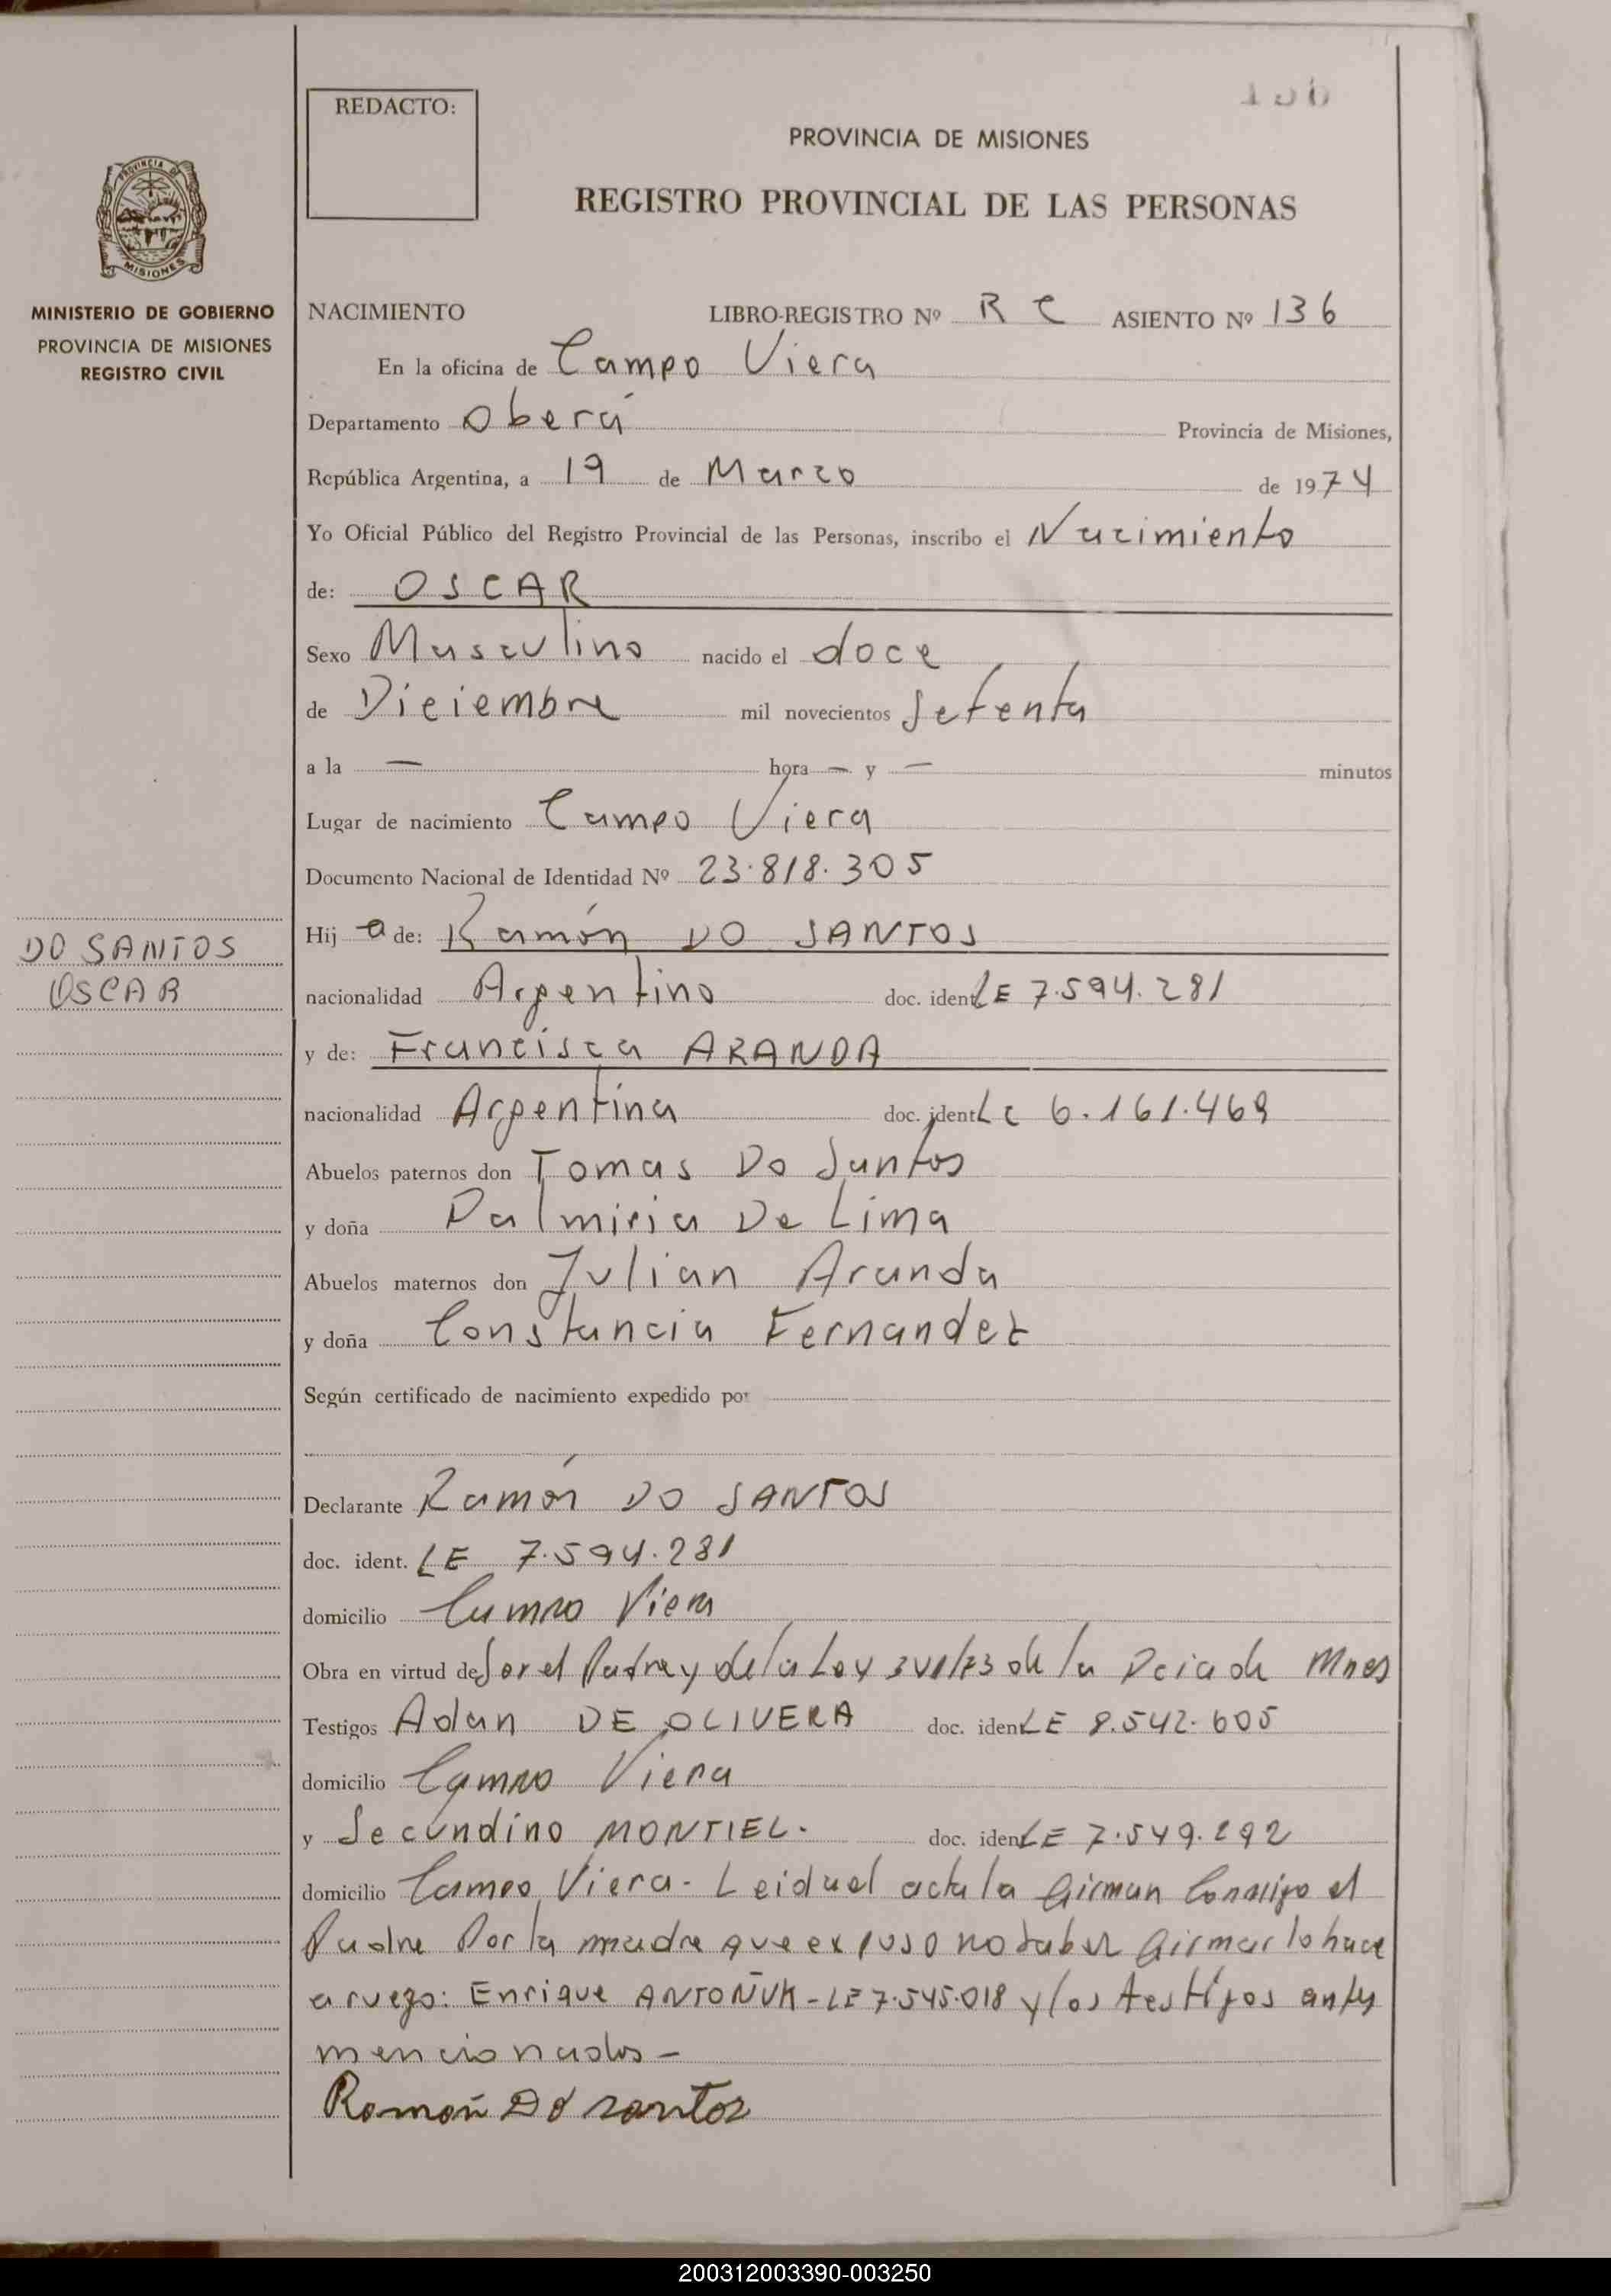 REDACTO:
PROVINCIA DE MISIONES
REGISTRO PROVINCIAL DE LAS PERSONAS
PROVINCIA DE
MISIONES
MINISTERIO DE GOBIERNO
PROVINCIA DE MISIONES
REGISTRO CIVIL
NACIMIENTO LIBRO-REGISTRO Nº R C ASIENTO Nº 136
En la oficina de Campo Viera
Departamento Oberá Provincia de Misiones,
República Argentina, a 19 de Marzo de 1974
Yo Oficial Público del Registro Provincial de las Personas, inscribo el Nacimiento
de: OSCAR
Sexo Masculino nacido el doce
de Diciembre mil novecientos Setenta
a la — hora — y — minutos
Lugar de nacimiento Campo Viera
Documento Nacional de Identidad Nº 23.818.305
DO SANTOS
OSCAR
Hij o de: Ramón DO SANTOS
nacionalidad Argentino doc. ident LE 7.594.281
y de: Francisca ARANDA
nacionalidad Argentina doc. ident LC 6.161.469
Abuelos paternos don Tomas Do Santos
y doña Palmiria De Lima
Abuelos maternos don Julian Aranda
y doña Constancia Fernandez
Según certificado de nacimiento expedido por
Declarante Ramón DO SANTOS
doc. ident. LE 7.594.281
domicilio Campo Viera
Obra en virtud de Ser el Padre y de la Ley de la Pcia de Mnes
Testigos Adan DE OLIVERA doc. iden LE 8.542.605
domicilio Campo Viera
y Secundino MONTIEL. doc. iden LE 7.549.292
domicilio Campo Viera - Leida el acta la Firman Conmigo el
Padre Por la madre que expuso no saber Firmar lo hace
a ruego: Enrique ANTOÑUK - LE 7.545.018 y los testigos antes
mencionados -
Ramoñ Do santos
200312003390-003250